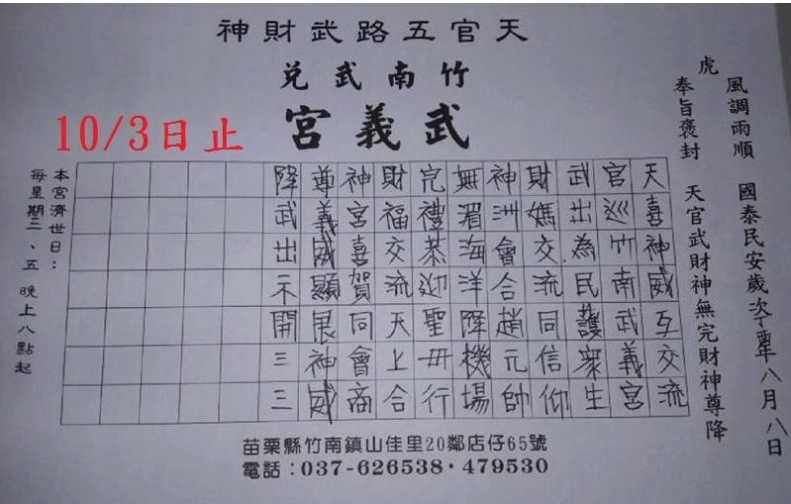 天官五路武財神
竹南武兌
武義宮
10/3日止
風調雨順 國泰民安歲次丁酉年八月八日
虎
奉旨褒封 天官武財神無完財神尊降
天喜神威互交流
官巡竹南武義宮
武出為民護眾生
財媽交流同信仰
神洲會合趙元帥
無湄海洋降機場
完禮恭迎聖毌行
財福交流天上合
神宮喜賀同會商
尊義威顯展神威
降武出示開三三
本宮濟世日：
每星期三、五 晚上八點起
苗栗縣竹南鎮山佳里20鄰店仔65號
電話：037-626538·479530